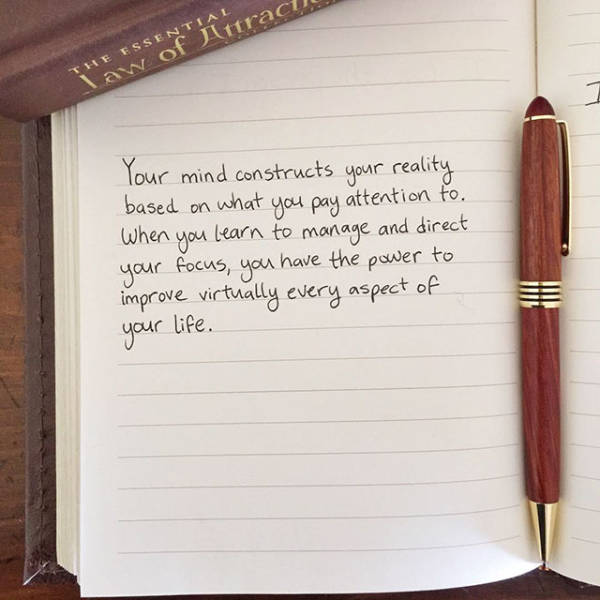 THE ESSENTIAL
Law of
Your mind constructs your reality
based on what you pay attention to.
When you learn to manage and direct
your focus, you have the power to
improve virtually every aspect of
your life.